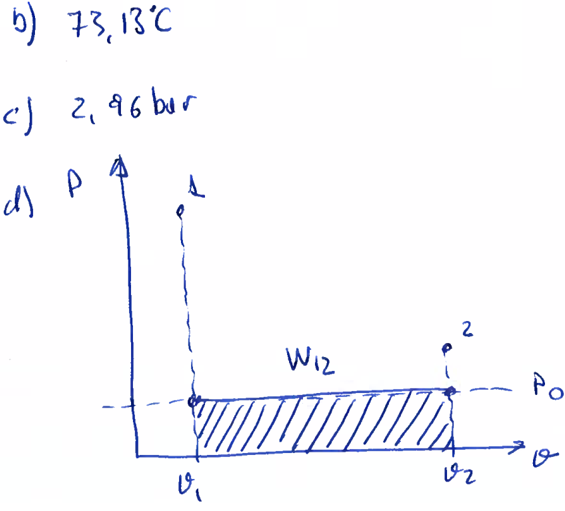 b) 73,13°C
c) 2,96 bar
d) P
1
2
W12
P0
v1
v2
v